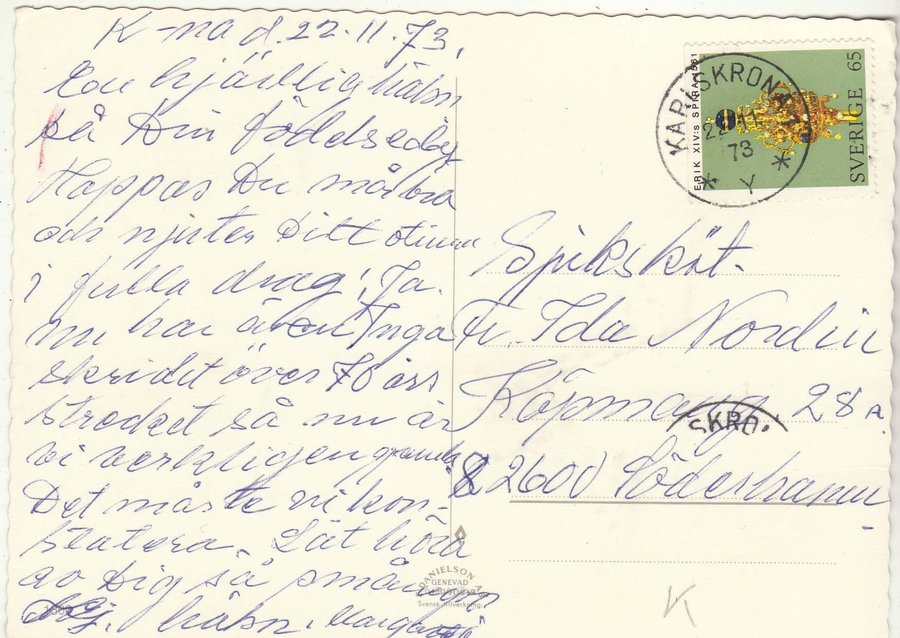 K-na d. 22-11-73.
En hjärtlig hälsn
på Din födelsedag
Hoppas Du mår bra
och njuter Ditt otium
i fulla drag! Ja.
nu har även Inga
skridit över 70 års
strecket så nu är
vi verkligen gamla
Det måste vi kon-
statera. Låt höra
av Dig så småningom
Hej, hälsn. Margareta
ERIK XIV:s SPIRA 1561
SVERIGE 65
KARLSKRONA
22 11
73
* Y *
Sjuksköt.
Fr. Ida Nordin
Köpmang. 28 A
SKRO
82600 Söderhamn
DANIELSON
GENEVAD
Svensk tillverkning
K